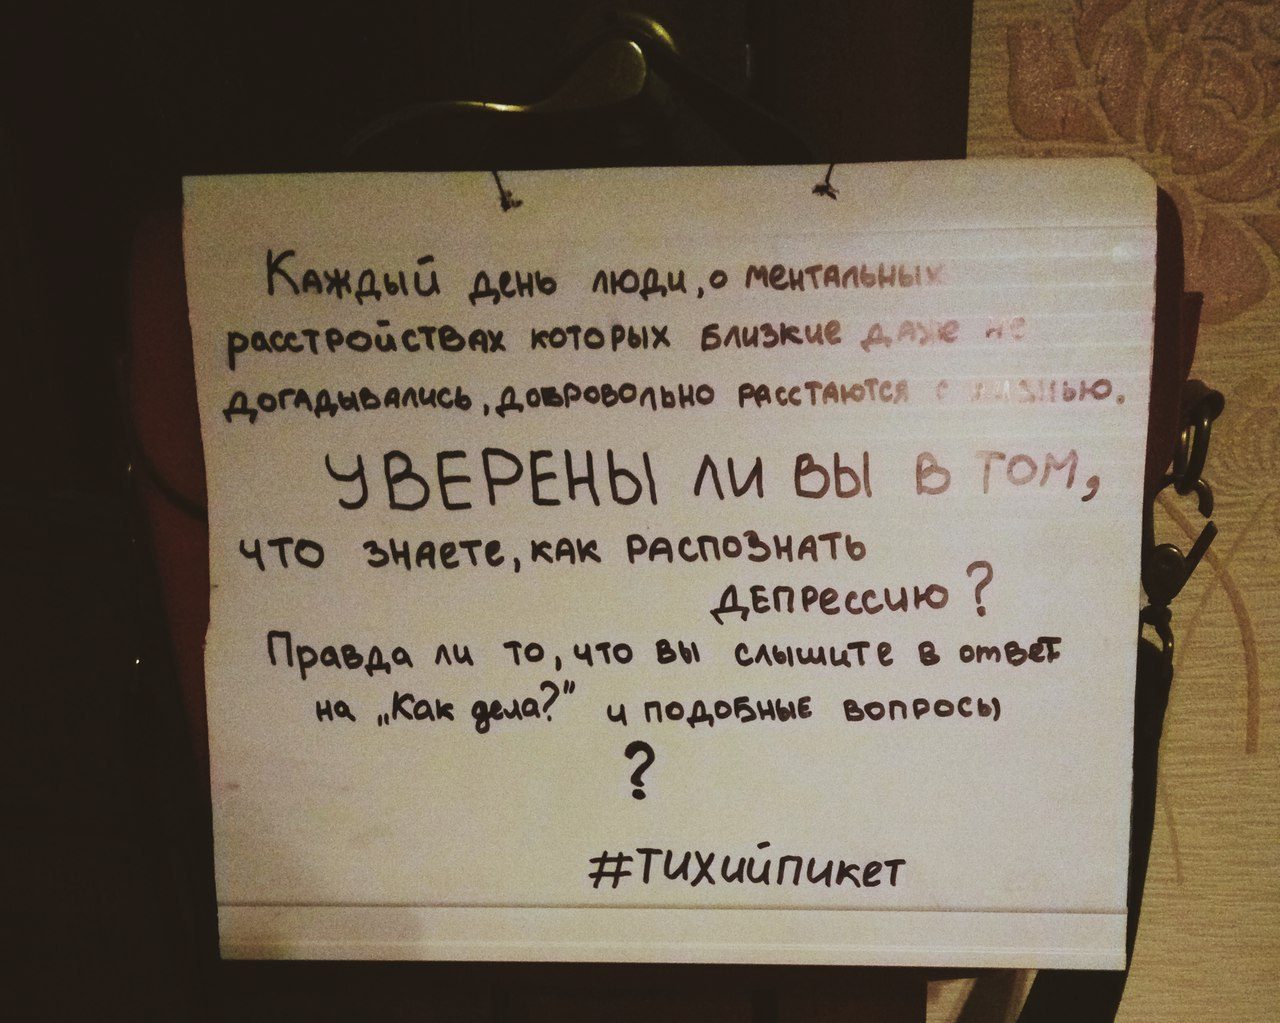 Каждый день люди, о ментальных
расстройствах которых близкие даже не
догадывались, добровольно расстаются с жизнью.
УВЕРЕНЫ ЛИ ВЫ В ТОМ,
что знаете, как распознать
депрессию?
Правда ли то, что вы слышите в ответ
на „Как дела?" и подобные вопросы
?
#тихийпикет